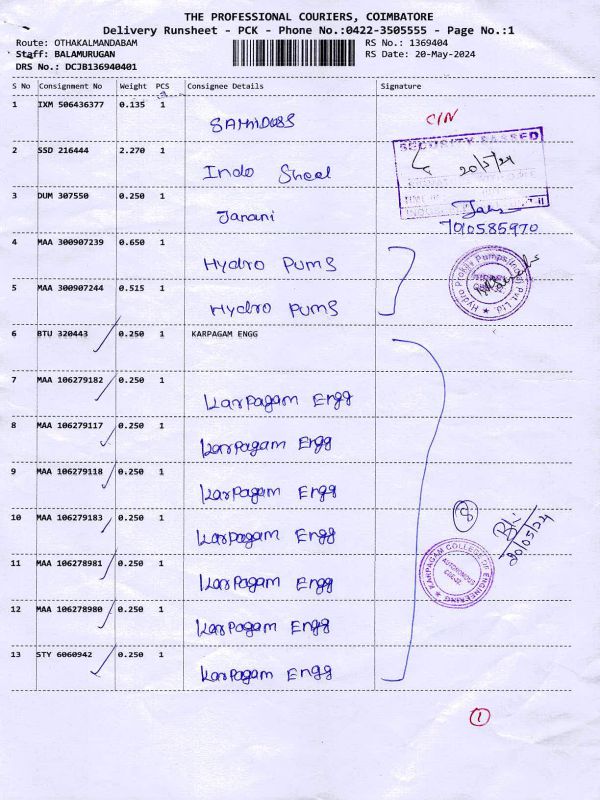 THE PROFESSIONAL COURIERS, COIMBATORE
Delivery Runsheet - PCK - Phone No.:0422-3505555 - Page No.:1
Route: OTHAKALMANDABAM RS No.: 1369404
Staff: BALAMURUGAN RS Date: 20-May-2024
DRS No.: DCJB136940401
S No Consignment No Weight PCS Consignee Details Signature
1 IXM 506436377 0.135 1 C/N
2 SSD 216444 2.270 1 Indo Sheel
SECURITY PASSED
20/5/24
3 DUM 307550 0.250 1 Janani
7010585970
4 MAA 300907239 0.650 1 Hydro Pums
5 MAA 300907244 0.515 1 Hydro Pums
Hydro Prokav Pumps (India) Pvt. Ltd.
6 BTU 320443 0.250 1 KARPAGAM ENGG
7 MAA 106279182 0.250 1 Karpagam Engg
8 MAA 106279117 0.250 1 Karpagam Engg
9 MAA 106279118 0.250 1 Karpagam Engg
10 MAA 106279183 0.250 1 Karpagam Engg
8
20/05/24
11 MAA 106278981 0.250 1 Karpagam Engg
KARPAGAM COLLEGE OF ENGINEERING
AUTONOMOUS
12 MAA 106278980 0.250 1 Karpagam Engg
13 STY 6060942 0.250 1 Karpagam Engg
1